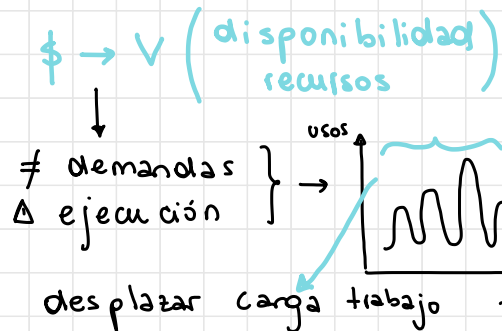 $ → V ( disponibilidad
recursos )
usos
≠ demandas
Δ ejecución } →
desplazar carga trabajo